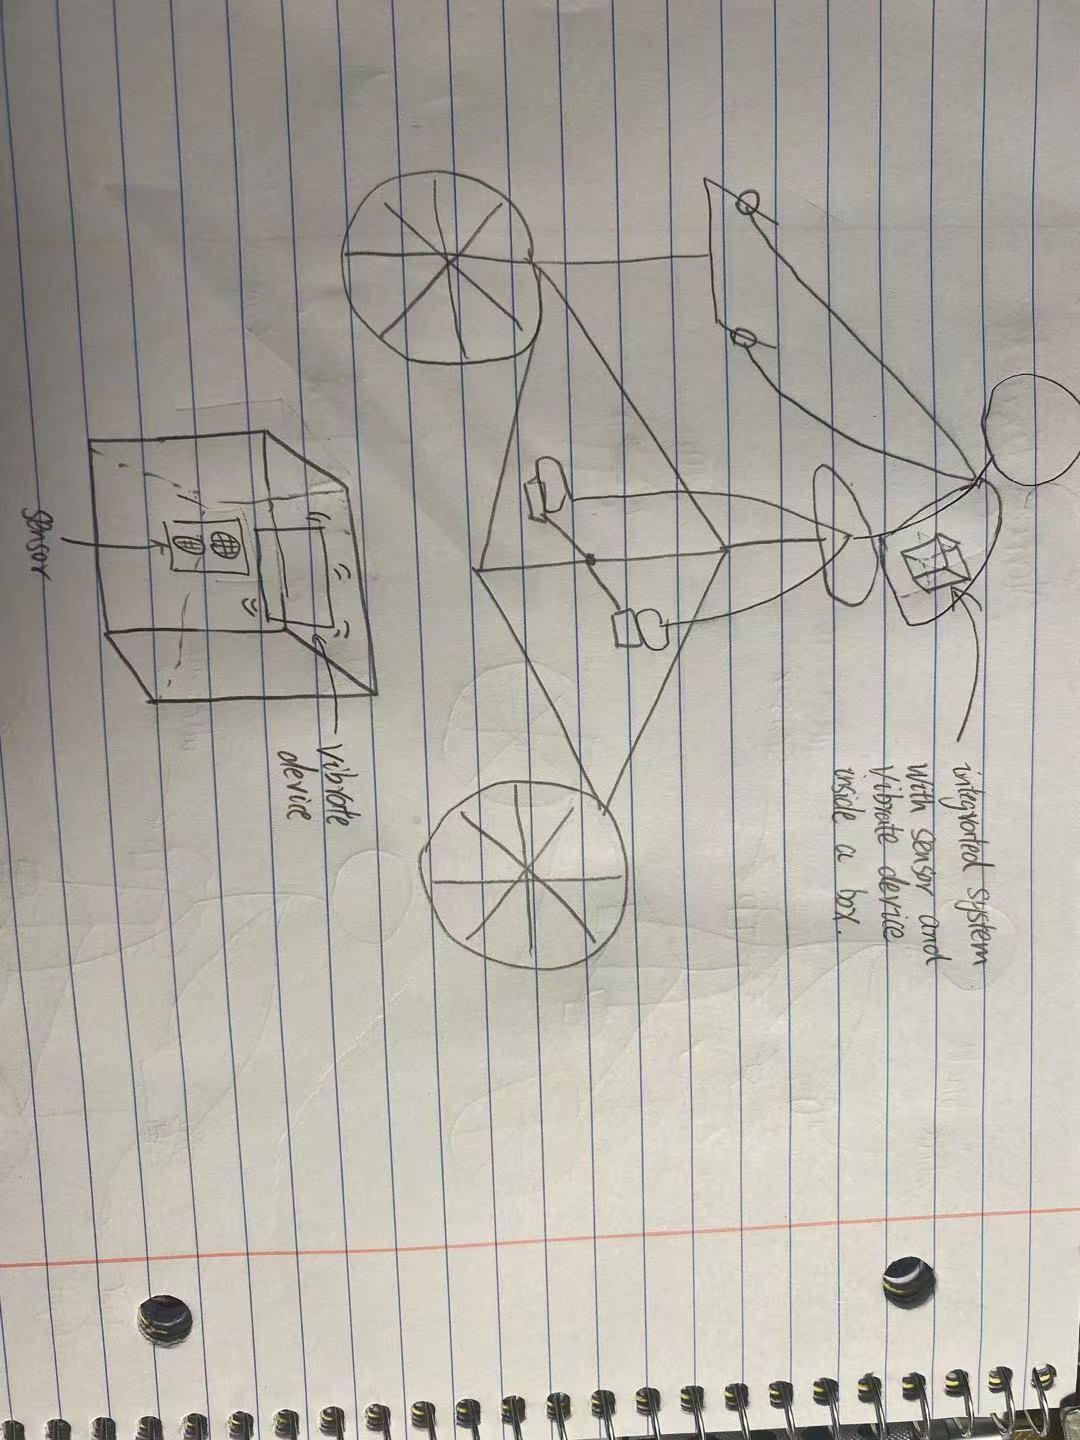 integrated system
with sensor and
vibrate device
inside a box.
vibrate
device
sensor